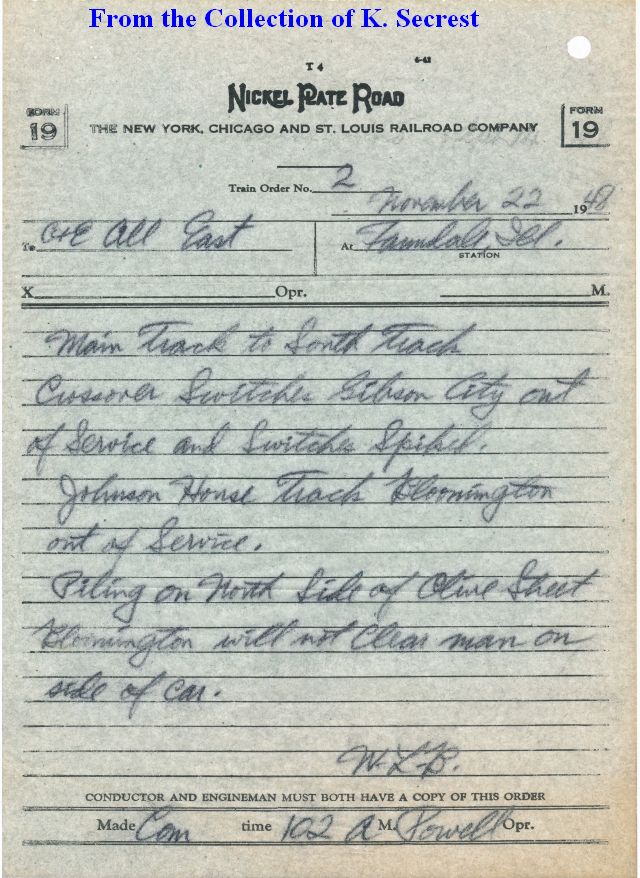 From the Collection of K. Secrest
T 4
6-42
NICKEL PLATE ROAD
FORM 19
THE NEW YORK, CHICAGO AND ST. LOUIS RAILROAD COMPANY
FORM 19
Train Order No. 2
November 22 1948
To C+E All East At Farmdale, Ill.
STATION
X Opr. M.
Main Track to South Track
Crossover Switches Gibson City out
of Service and Switches Spiked.
Johnson House Track Bloomington
out of Service.
Piling on North Side of Olive Street
Bloomington will not Clear man on
side of Car.
W.L.B.
CONDUCTOR AND ENGINEMAN MUST BOTH HAVE A COPY OF THIS ORDER
Made Com time 102 A M. Powell Opr.